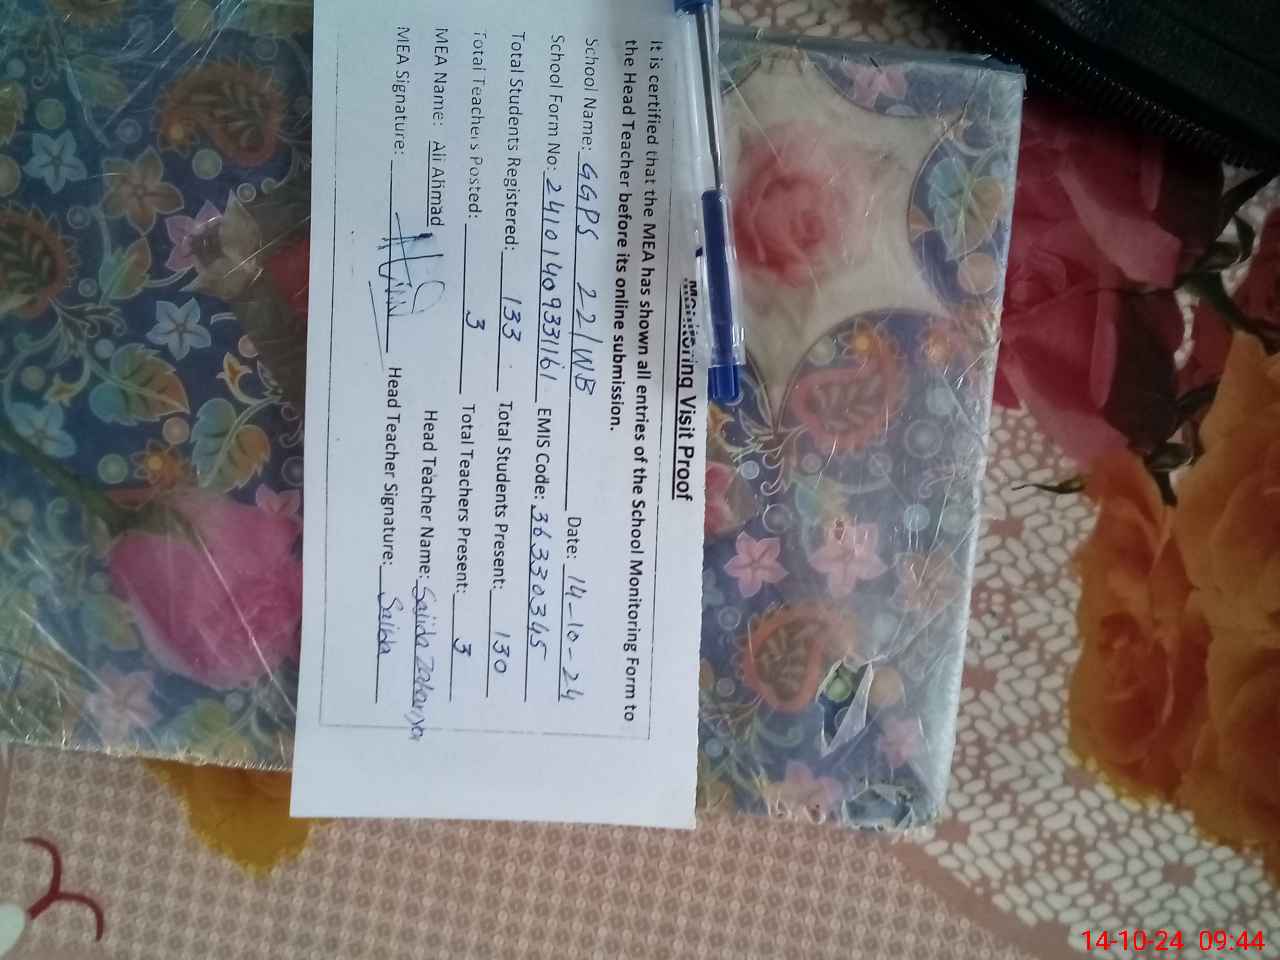 Monitoring Visit Proof
It is certified that the MEA has shown all entries of the School Monitoring Form to
the Head Teacher before its online submission.
School Name: GGPS 22/WB Date: 14-10-24
School Form No: 24101409331161 EMIS Code: 36330345
Total Students Registered: 133 Total Students Present: 130
Total Teachers Posted: 3 Total Teachers Present: 3
MEA Name: Ali Ahmad Head Teacher Name: Sajida
MEA Signature: Head Teacher Signature: Sajida
14-10-24 09:44